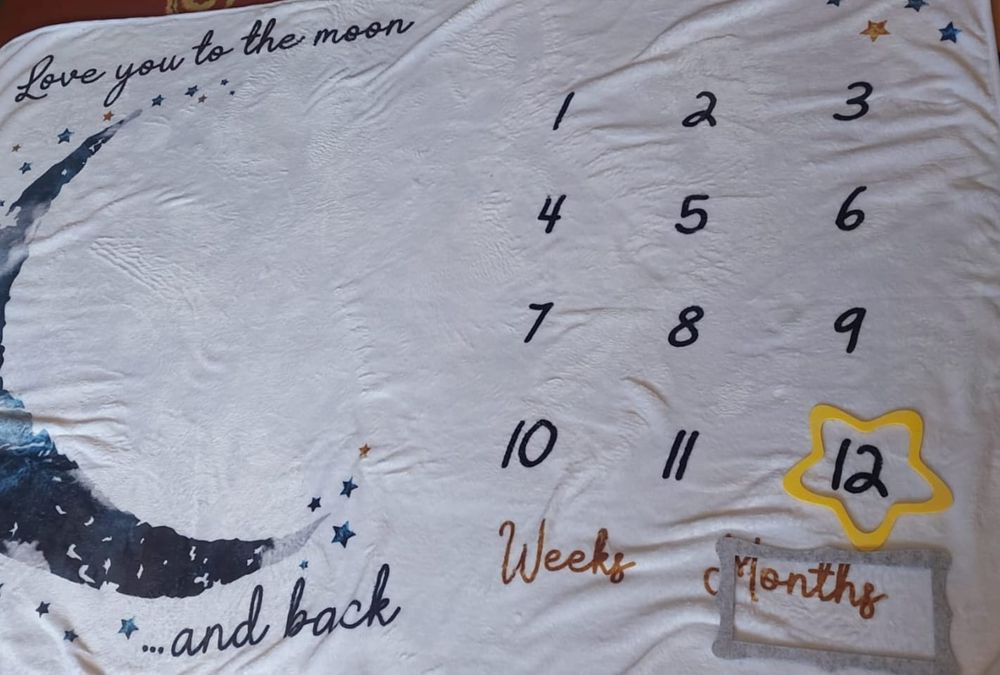 Love you to the moon
1 2 3
4 5 6
7 8 9
10 11 12
Weeks Months
...and back